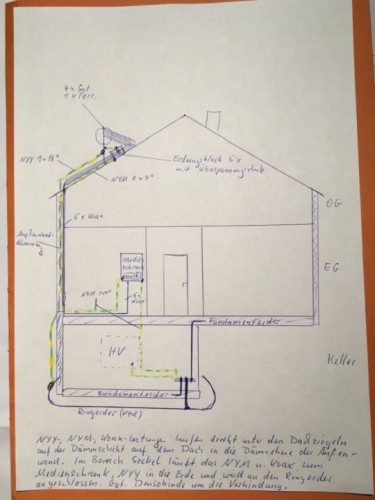 4x Sat
1x Terr.
NYY 1x16²
NYM 1x4²
Erdungsblech 5x
mit Überspannungsschutz
OG
5x Koax
Außenwand-
dämmung
Medien
schrank
EG
NYM 1x4²
Fundamenterder
HV
Keller
Fundamenterder
Ringerder (V4A)
NYY, NYM, Koax-Leitung laufen direkt unter den Dachziegeln
auf der Dämmschicht auf dem Dach in die Dämmebene der Außen-
wand. Im Bereich Sockel läuft das NYM u. Koax zum
Medienschrank, NYY in die Erde und wird an den Ringerder
angeschlossen. Ggf. Dämmschürze um die Verbindung.